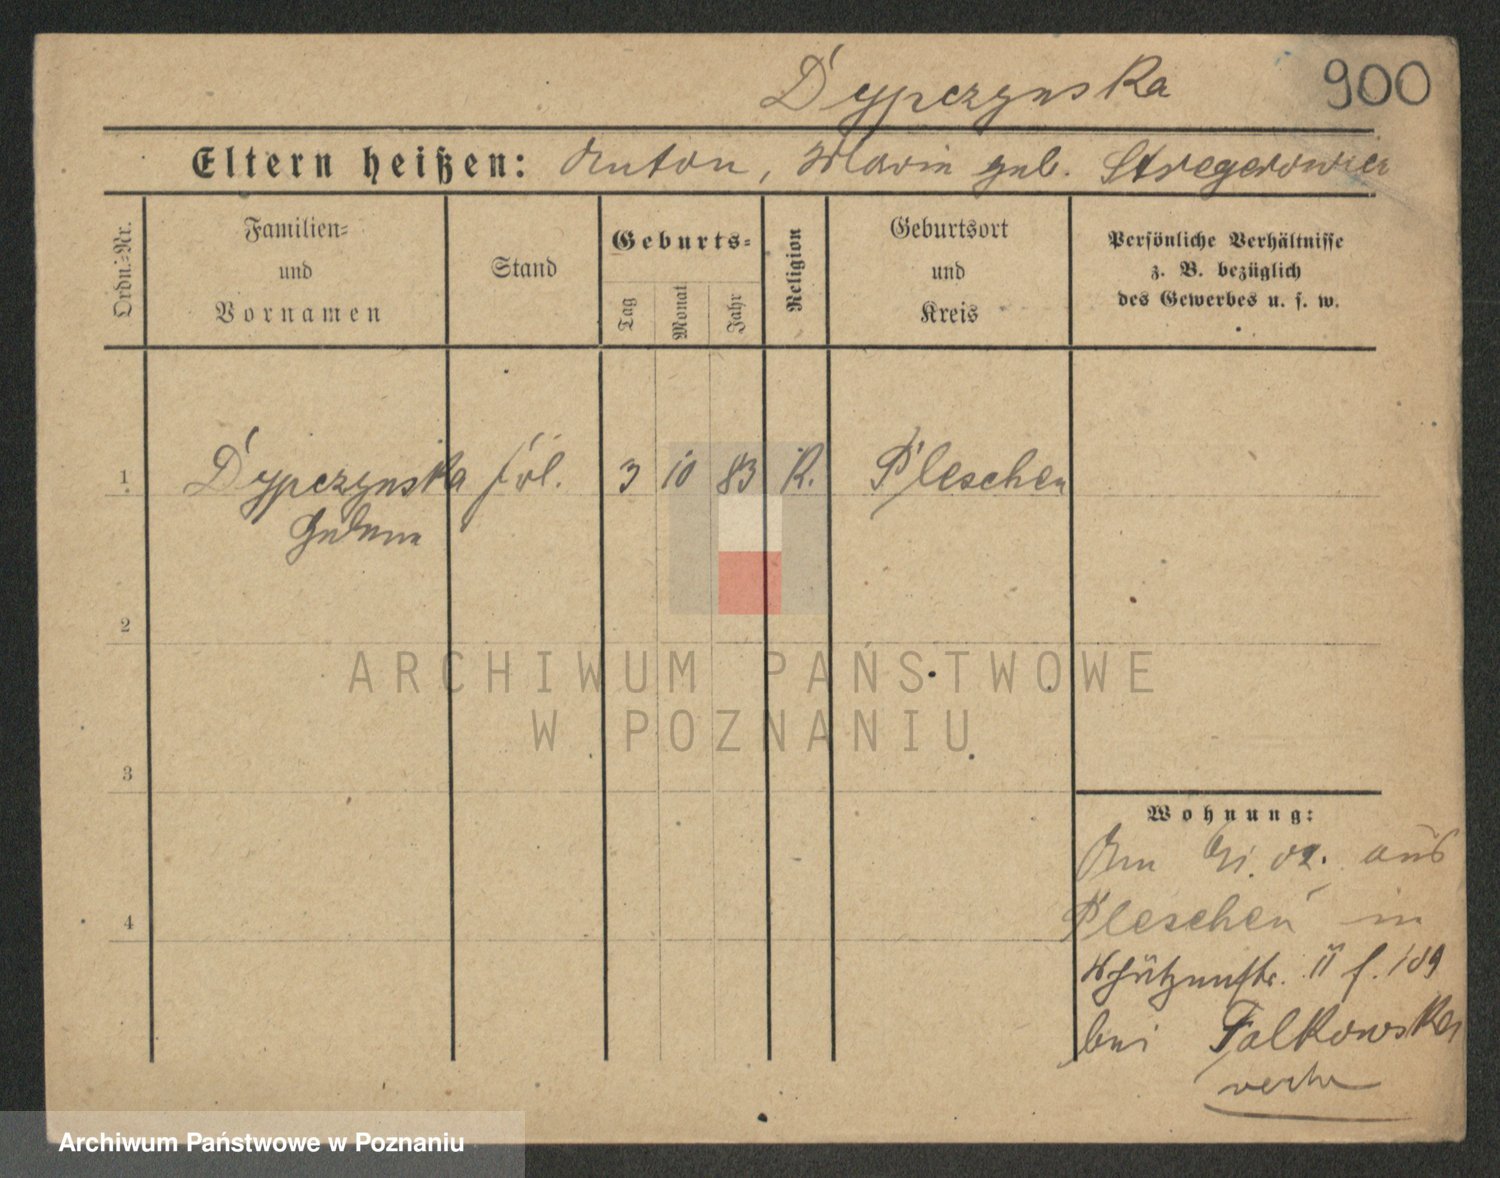 Dypczynska 900
Eltern heißen: Anton, Marie geb. Stregerowicz
Ordn.-Nr.
Familien-
und
Vornamen
Stand
Geburts-
Tag
Monat
Jahr
Religion
Geburtsort
und
Kreis
Persönliche Verhältnisse
z. B. bezüglich
des Gewerbes u. s. w.
1 Dypczynska Frl. 3 10 83 R. Pleschen
2
3
4
Wohnung:
aus
Pleschen in
Schützenstr. II f. 189
bei Falkowska
ARCHIWUM PAŃSTWOWE
W POZNANIU
Archiwum Państwowe w Poznaniu